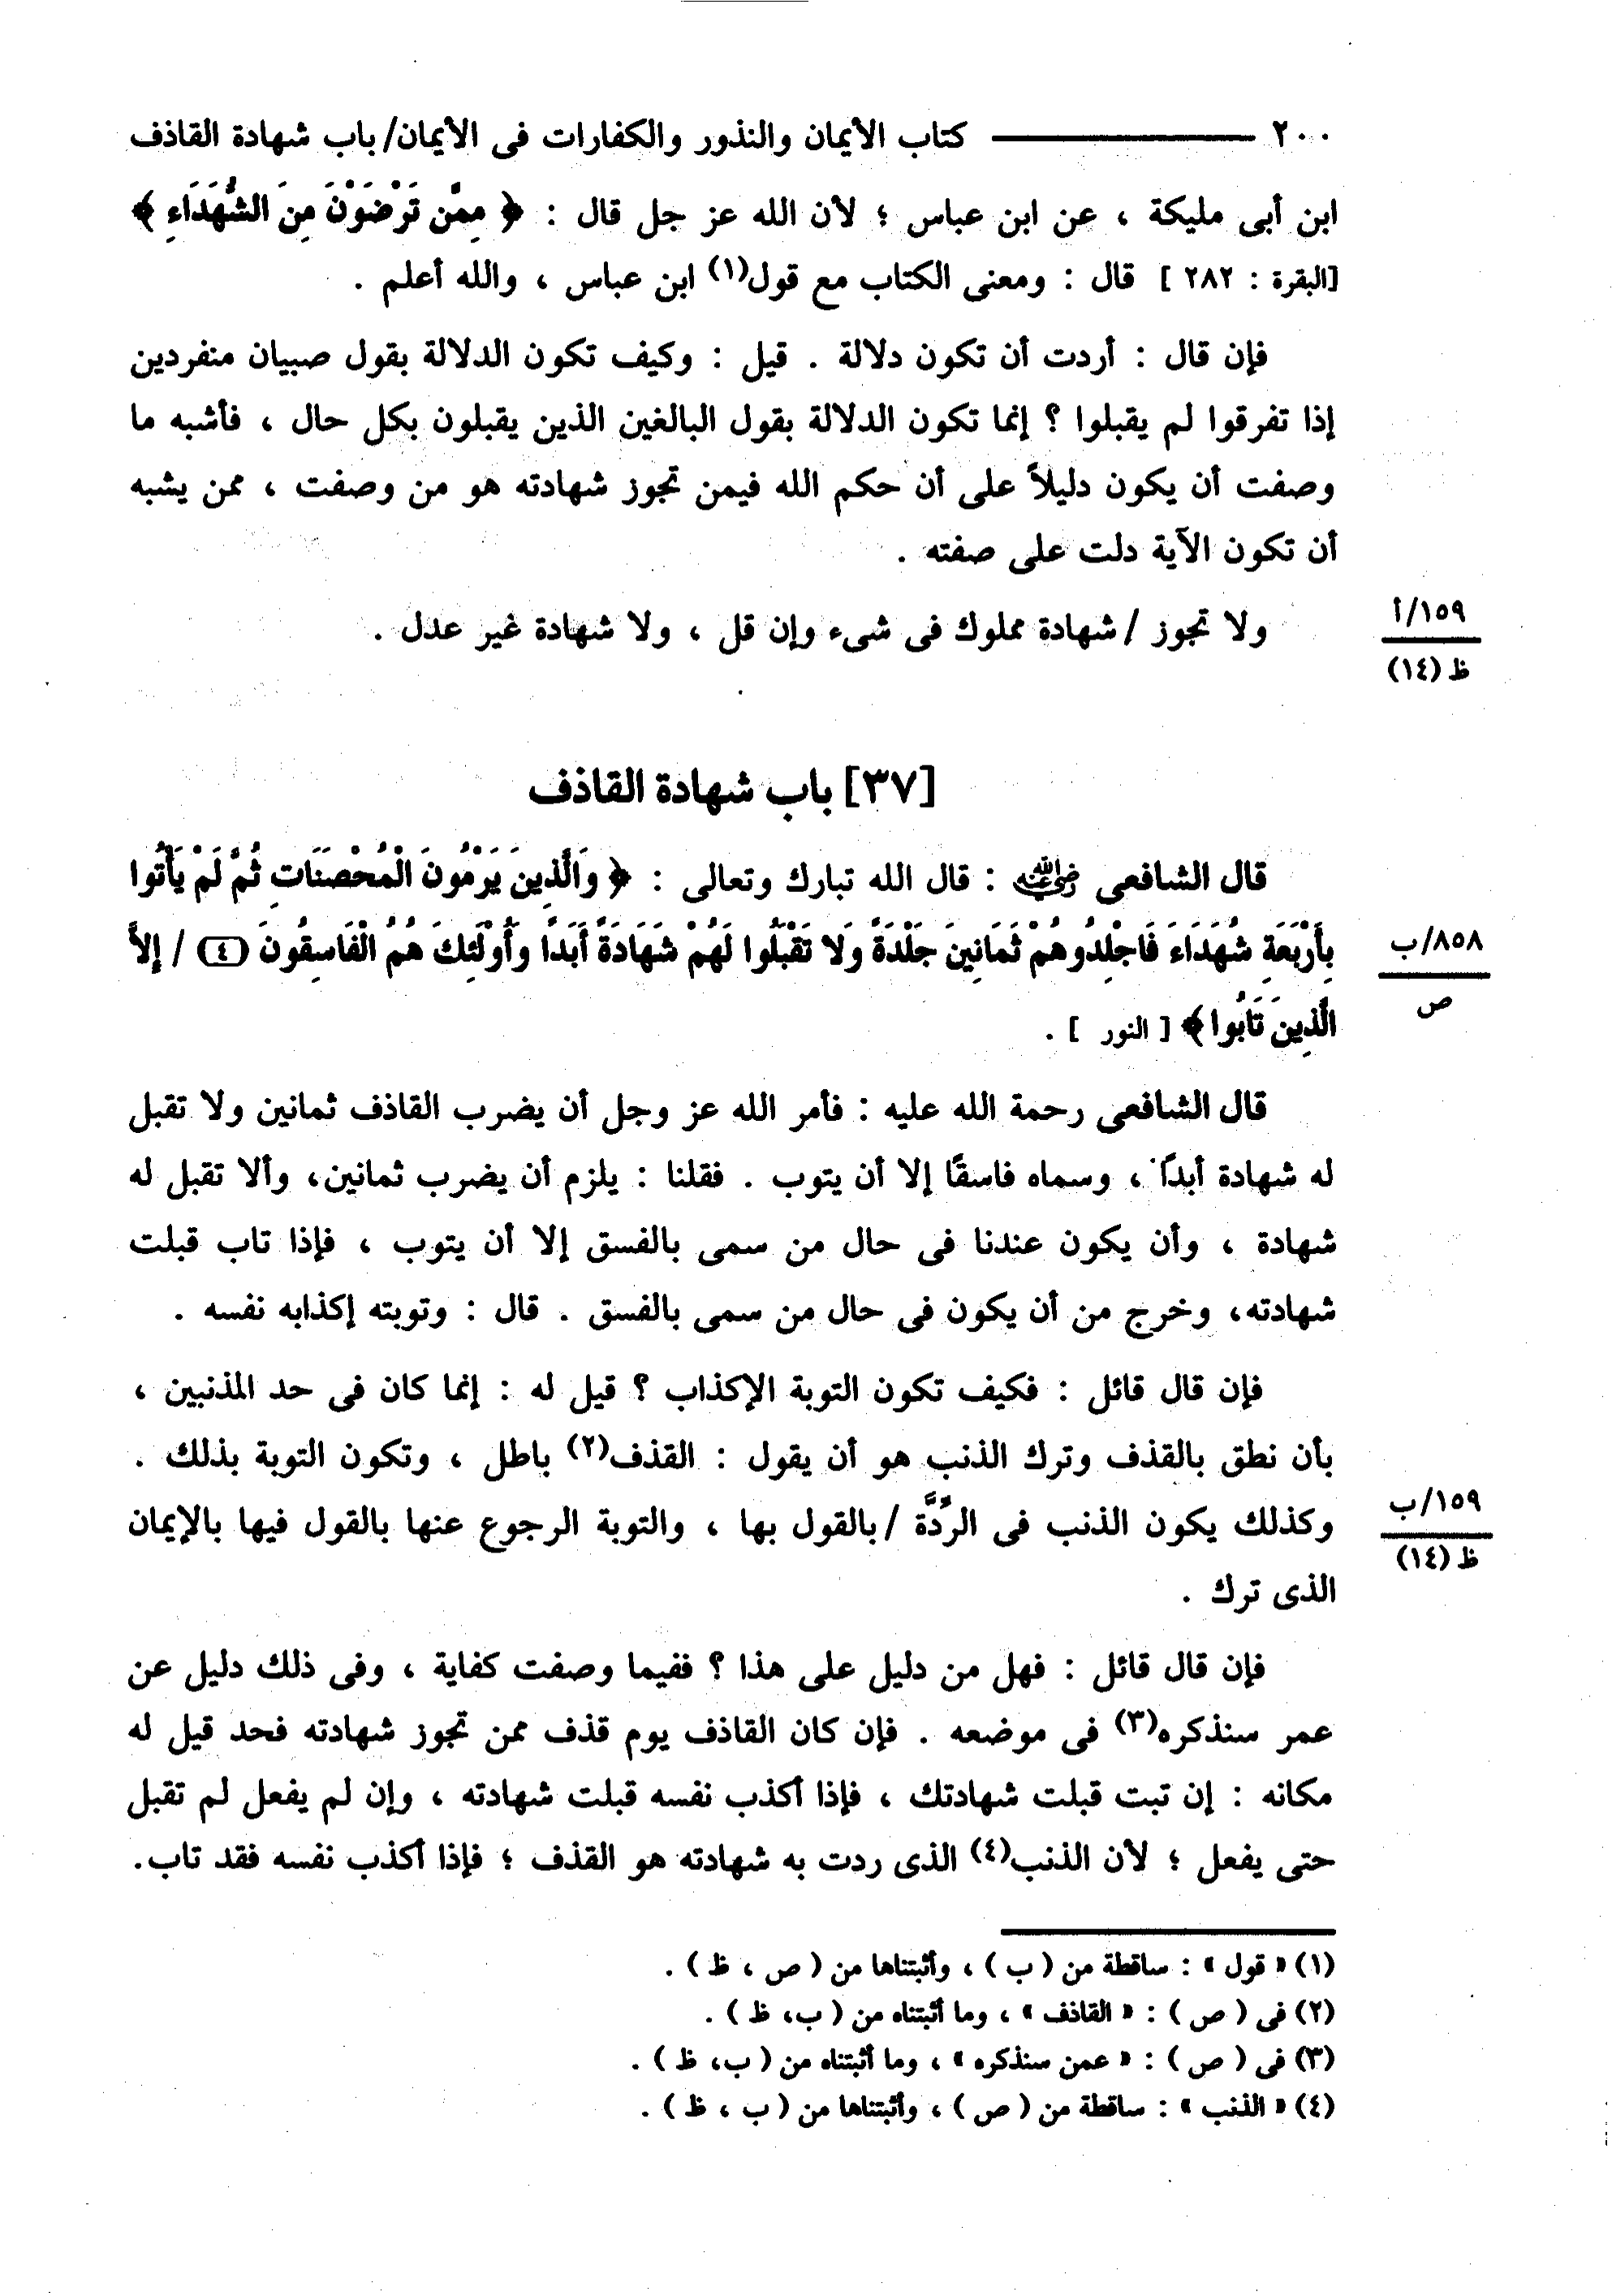 ٢٠٠ ـــــــــ كتاب الأيمان والنذور والكفارات فى الأيمان/ باب شهادة القاذف
ابن أبى مليكة ، عن ابن عباس ؛ لأن الله عز جل قال : ﴿ مِمَّن تَرْضَوْنَ مِنَ الشُّهَدَاءِ ﴾
[البقرة : ٢٨٢ ] قال : ومعنى الكتاب مع قول(١) ابن عباس ، والله أعلم .
فإن قال : أردت أن تكون دلالة . قيل : وكيف تكون الدلالة بقول صبيان منفردين
إذا تفرقوا لم يقبلوا ؟ إنما تكون الدلالة بقول البالغين الذين يقبلون بكل حال ، فأشبه ما
وصفت أن يكون دليلاً على أن حكم الله فيمن تجوز شهادته هو من وصفت ، ممن يشبه
أن تكون الآية دلت على صفته .
ولا تجوز / شهادة مملوك فى شىء وإن قل ، ولا شهادة غير عدل .
١٥٩/أ
ظ (١٤)
[٣٧] باب شهادة القاذف
قال الشافعى رضي الله عنه : قال الله تبارك وتعالى : ﴿ وَالَّذِينَ يَرْمُونَ الْمُحْصَنَاتِ ثُمَّ لَمْ يَأْتُوا
بِأَرْبَعَةِ شُهَدَاءَ فَاجْلِدُوهُمْ ثَمَانِينَ جَلْدَةً وَلَا تَقْبَلُوا لَهُمْ شَهَادَةً أَبَدًا وَأُولَئِكَ هُمُ الْفَاسِقُونَ (٤) / إِلاَّ
٨٥٨/ب
ص
الَّذِينَ تَابُوا ﴾ [ النور ] .
قال الشافعى رحمة الله عليه : فأمر الله عز وجل أن يضرب القاذف ثمانين ولا تقبل
له شهادة أبدًا ، وسماه فاسقًا إلا أن يتوب . فقلنا : يلزم أن يضرب ثمانين، وألا تقبل له
شهادة ، وأن يكون عندنا فى حال من سمى بالفسق إلا أن يتوب ، فإذا تاب قبلت
شهادته، وخرج من أن يكون فى حال من سمى بالفسق . قال : وتوبته إكذابه نفسه .
فإن قال قائل : فكيف تكون التوبة الإكذاب ؟ قيل له : إنما كان فى حد المذنبين ،
بأن نطق بالقذف وترك الذنب هو أن يقول : القذف(٢) باطل ، وتكون التوبة بذلك .
وكذلك يكون الذنب فى الرِّدَّة / بالقول بها ، والتوبة الرجوع عنها بالقول فيها بالإيمان
١٥٩/ب
ظ (١٤)
الذى ترك .
فإن قال قائل : فهل من دليل على هذا ؟ ففيما وصفت كفاية ، وفى ذلك دليل عن
عمر سنذكره(٣) فى موضعه . فإن كان القاذف يوم قذف ممن تجوز شهادته فحد قيل له
مكانه : إن تبت قبلت شهادتك ، فإذا أكذب نفسه قبلت شهادته ، وإن لم يفعل لم تقبل
حتى يفعل ؛ لأن الذنب(٤) الذى ردت به شهادته هو القذف ؛ فإذا أكذب نفسه فقد تاب.
(١) « قول » : ساقطة من ( ب ) ، وأثبتناها من ( ص ، ظ ) .
(٢) فى ( ص ) : « القاذف » ، وما أثبتناه من ( ب، ظ ) .
(٣) فى ( ص ) : « عمن سنذكره » ، وما أثبتناه من ( ب، ظ ) .
(٤) « الذنب » : ساقطة من ( ص ) ، وأثبتناها من ( ب ، ظ ) .